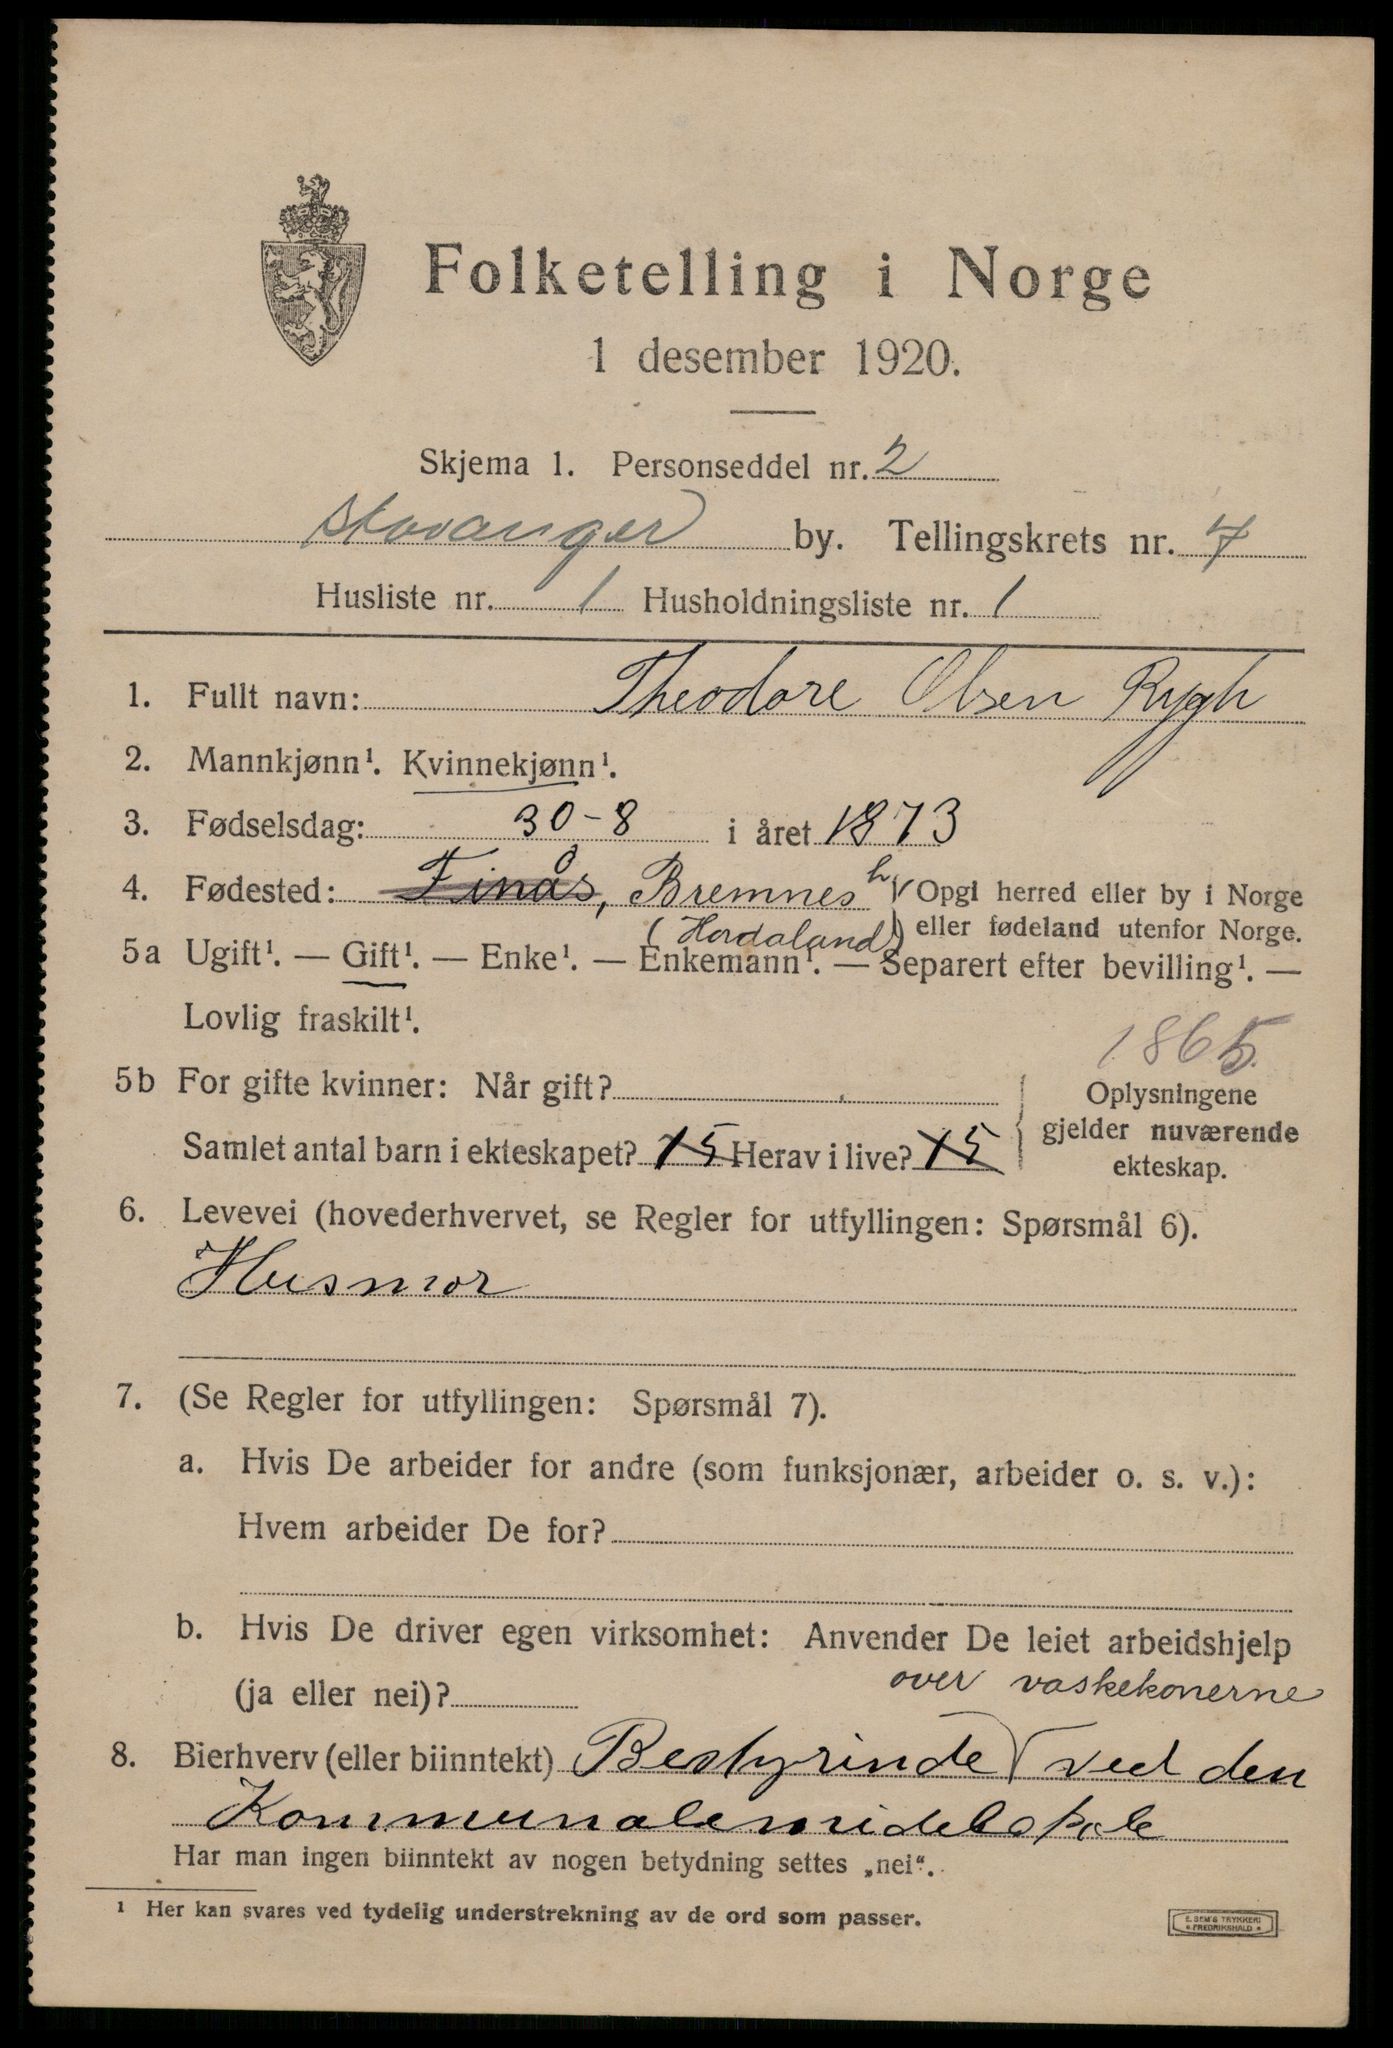 Folketelling i Norge
1 desember 1920.
Skjema 1. Personseddel nr. 2
Stavanger by. Tellingskrets nr. 7
Husliste nr. 1 Husholdningsliste nr. 1
1. Fullt navn: Theodore Olsen Rygh
2. Mannkjønn¹. Kvinnekjønn¹.
3. Fødselsdag: 30-8 i året 1873
4. Fødested: Finås, Bremnes h Opgi herred eller by i Norge
(Hordaland) eller fødeland utenfor Norge.
5a Ugift¹. — Gift¹. — Enke¹. — Enkemann¹. — Separert efter bevilling¹. —
Lovlig fraskilt¹.
1865.
5b For gifte kvinner: Når gift? Oplysningene
gjelder nuværende
Samlet antal barn i ekteskapet? 15 Herav i live? 15 ekteskap.
6. Levevei (hovederhvervet, se Regler for utfyllingen: Spørsmål 6).
Husmor
7. (Se Regler for utfyllingen: Spørsmål 7).
a. Hvis De arbeider for andre (som funksjonær, arbeider o. s. v.):
Hvem arbeider De for?
b. Hvis De driver egen virksomhet: Anvender De leiet arbeidshjelp
(ja eller nei)?
over vaskekonerne
8. Bierhverv (eller biinntekt) Bestyrinde ved den
Kommunalemidelskole
Har man ingen biinntekt av nogen betydning settes „nei“.
¹ Her kan svares ved tydelig understrekning av de ord som passer.
E. SEM'S TRYKKERI
* FREDRIKSHALD *